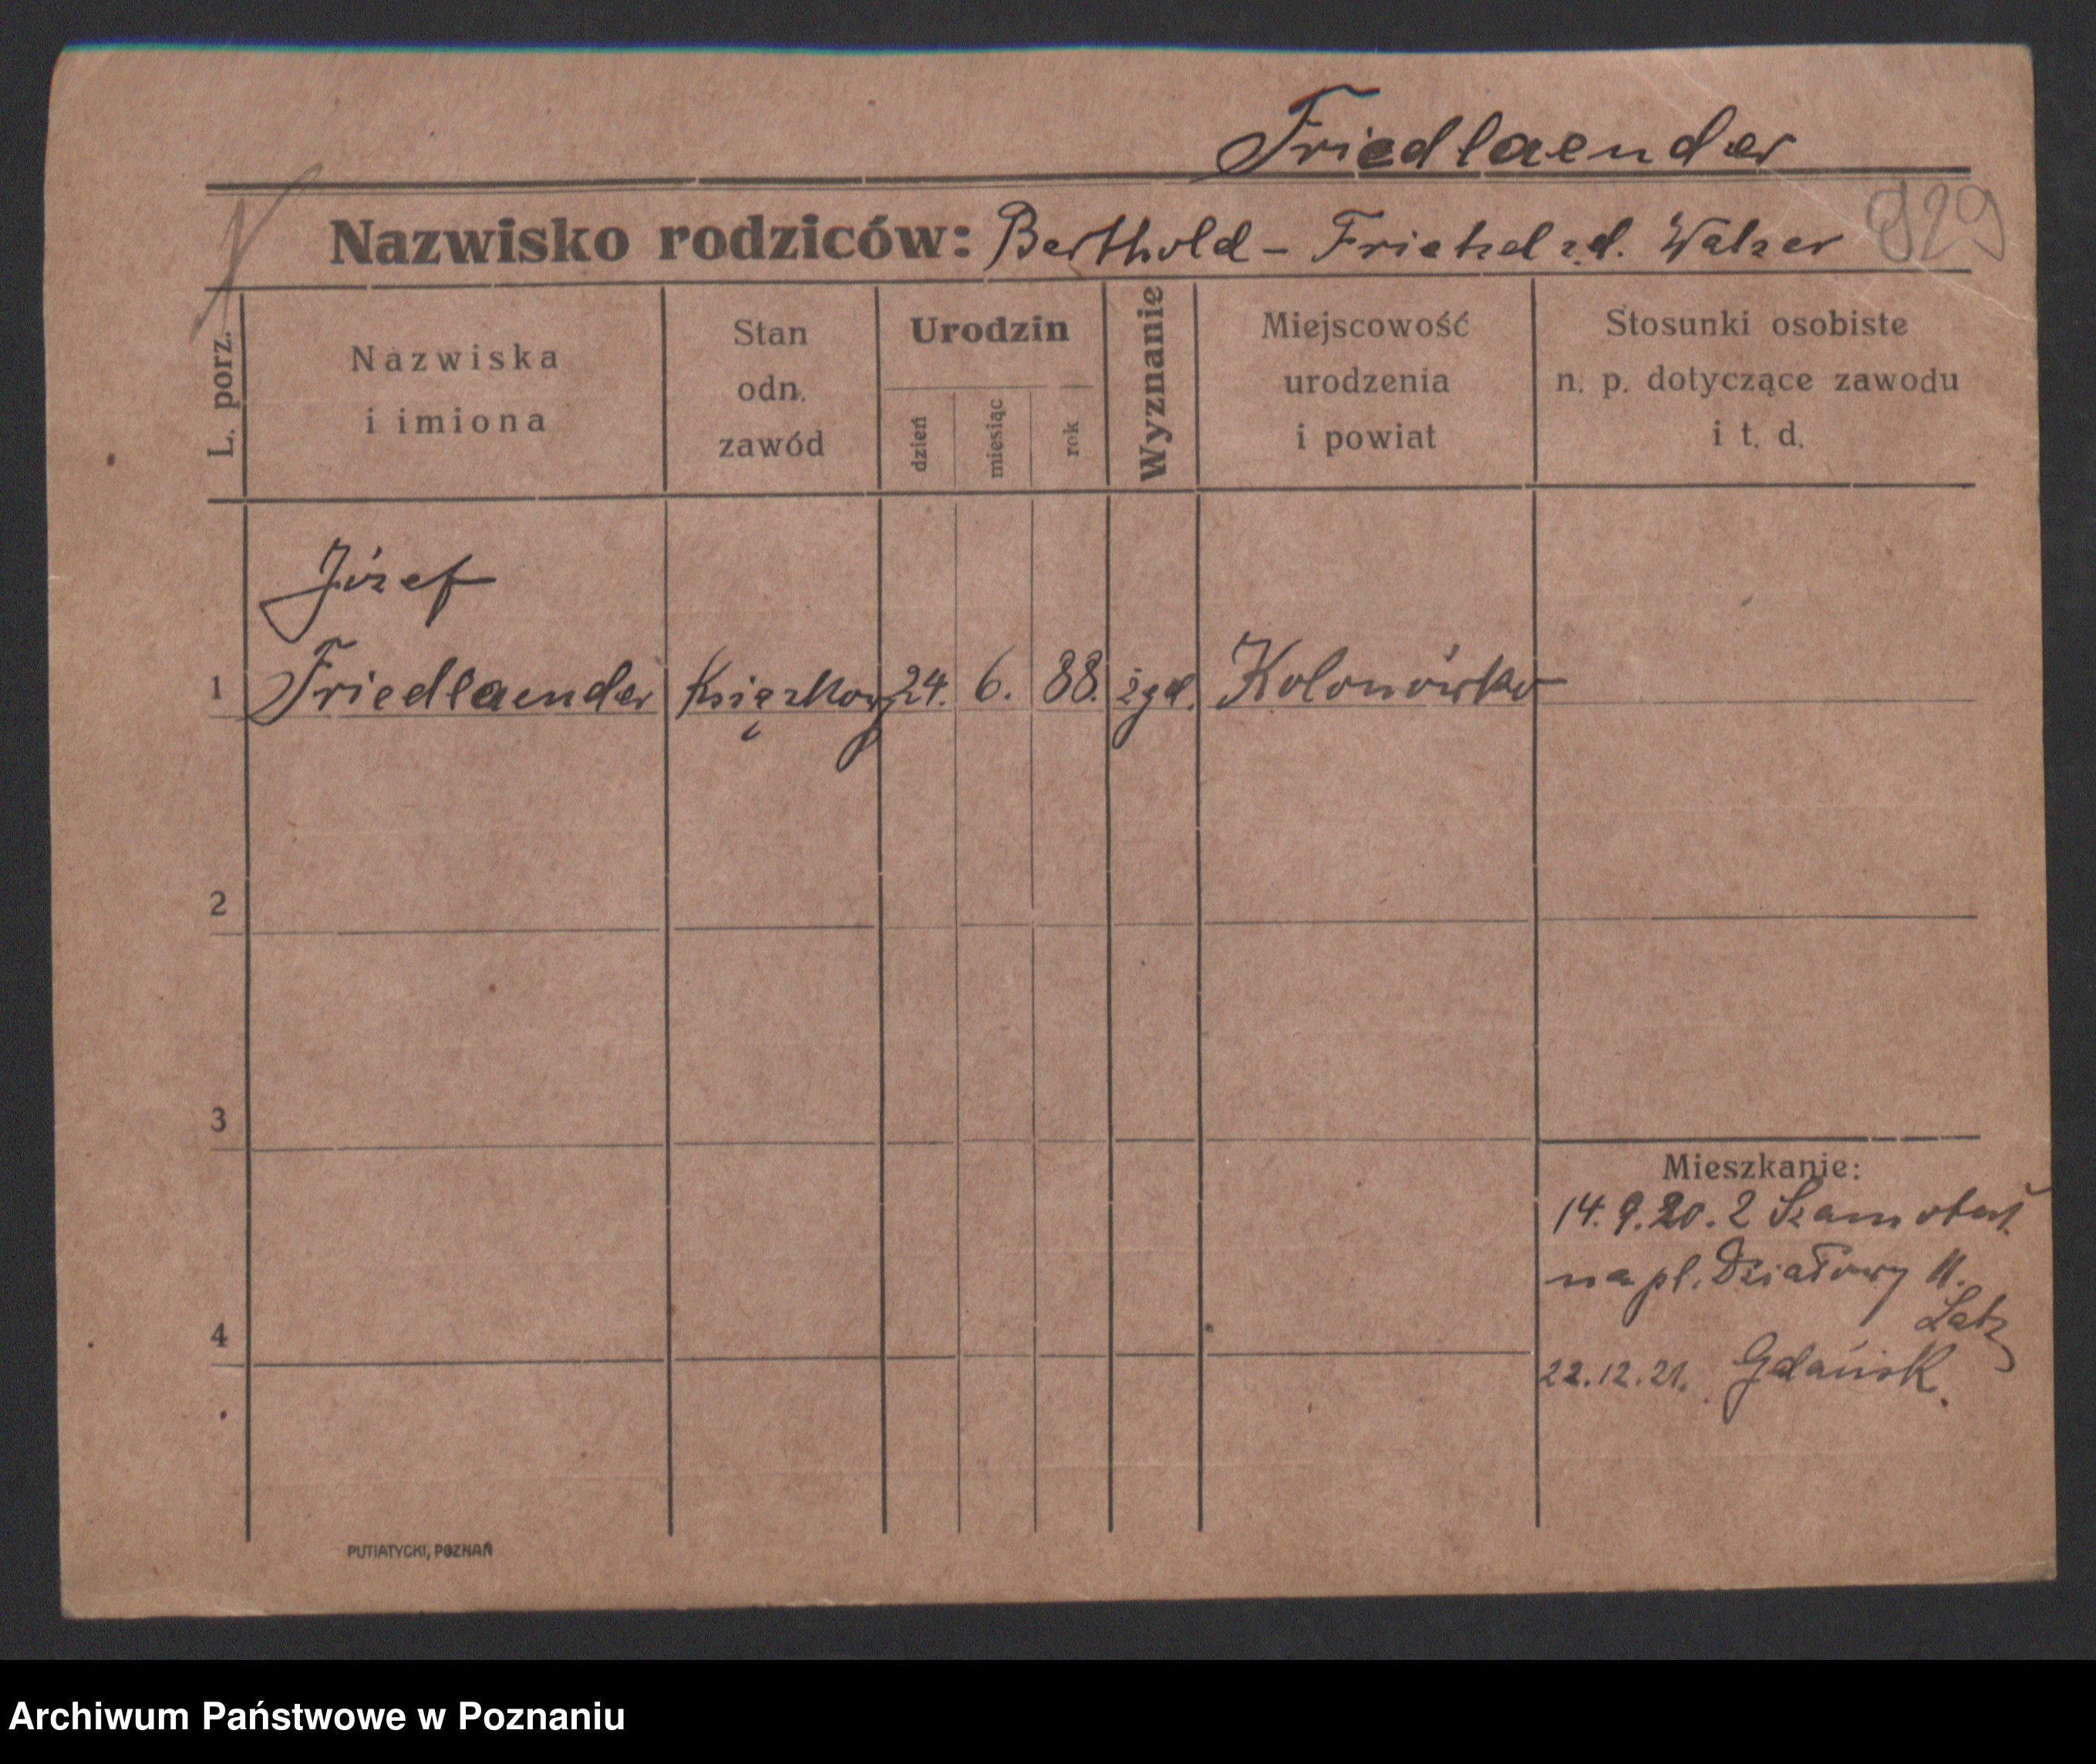 Friedlaender
Nazwisko rodziców: Berthold - Frietzel z.d. Walzer
929
L. porz.
Nazwiska
i imiona
Stan
odn.
zawód
Urodzin
dzień
miesiąc
rok
Wyznanie
Miejscowość
urodzenia
i powiat
Stosunki osobiste
n. p. dotyczące zawodu
i t. d.
Józef
1 Friedlaender Książkowy 24. 6. 88. żyd. Kolonówko
2
3
4
Mieszkanie:
14. 9. 20. z Szamotuł
na pl. Działowy 11.
22.12.21. Gdańsk.
PUTIATYCKI, POZNAŃ
Archiwum Państwowe w Poznaniu